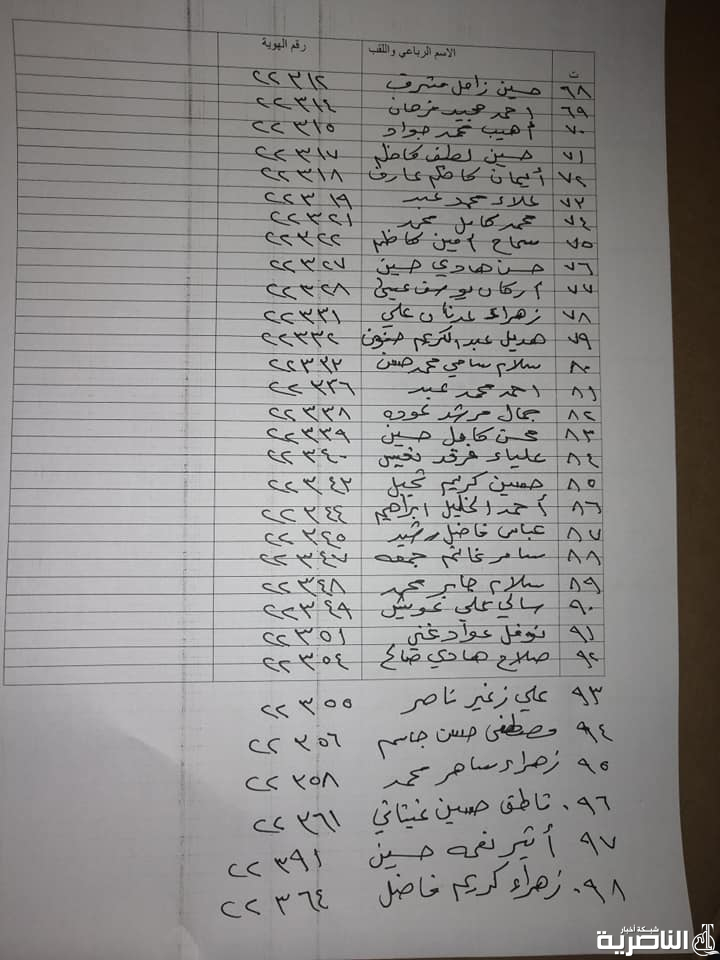 ت الاسم الرباعي واللقب رقم الهوية
٦٨ حسين زامل مشرف ٢٢٣١٢
٦٩ احمد مجيد فرحان ٢٢٣١٤
٧٠ أهيب محمد جواد ٢٢٣١٥
٧١ حسين لطيف كاظم ٢٢٣١٧
٧٢ أيمان كاظم عارف ٢٢٣١٨
٧٣ علاء محمد عبد ٢٢٣١٩
٧٤ محمد كامل محمد ٢٢٣٢١
٧٥ سماح امين كاظم ٢٢٣٢٢
٧٦ حسن هادي حسين ٢٢٣٢٧
٧٧ اركان يوسف عيسى ٢٢٣٢٨
٧٨ زهراء عدنان علي ٢٢٣٣١
٧٩ هديل عبد الكريم ٢٢٣٣٢
٨٠ سلام سامي محمد حسن ٢٢٣٣٣
٨١ احمد محمد عبد ٢٢٣٣٦
٨٢ جمال مرشد عوده ٢٢٣٣٨
٨٣ محسن كامل حسين ٢٢٣٣٩
٨٤ علياء فرقد نفيس ٢٢٣٤٠
٨٥ حسين كريم ٢٢٣٤٣
٨٦ أحمد الخليل ابراهيم ٢٢٣٤٤
٨٧ عباس فاضل رشيد ٢٢٣٤٥
٨٨ سامر غانم جمعه ٢٢٣٤٧
٨٩ سلام جابر محمد ٢٢٣٤٨
٩٠ سالي علي غويش ٢٢٣٤٩
٩١ نوفل عواد غني ٢٢٣٥١
٩٢ صلاح هادي صالح ٢٢٣٥٤
٩٣ علي زغير ناصر ٢٢٣٥٥
٩٤ مصطفى حسن جاسم ٢٢٣٥٦
٩٥ زهراء ساهر محمد ٢٢٣٥٨
٩٦. ناطق حسين ٢٢٣٦١
٩٧ أثير نعمه حسين ٢٢٣٩١
٩٨. زهراء كريم فاضل ٢٢٣٦٤
شبكة أخبار
الناصرية